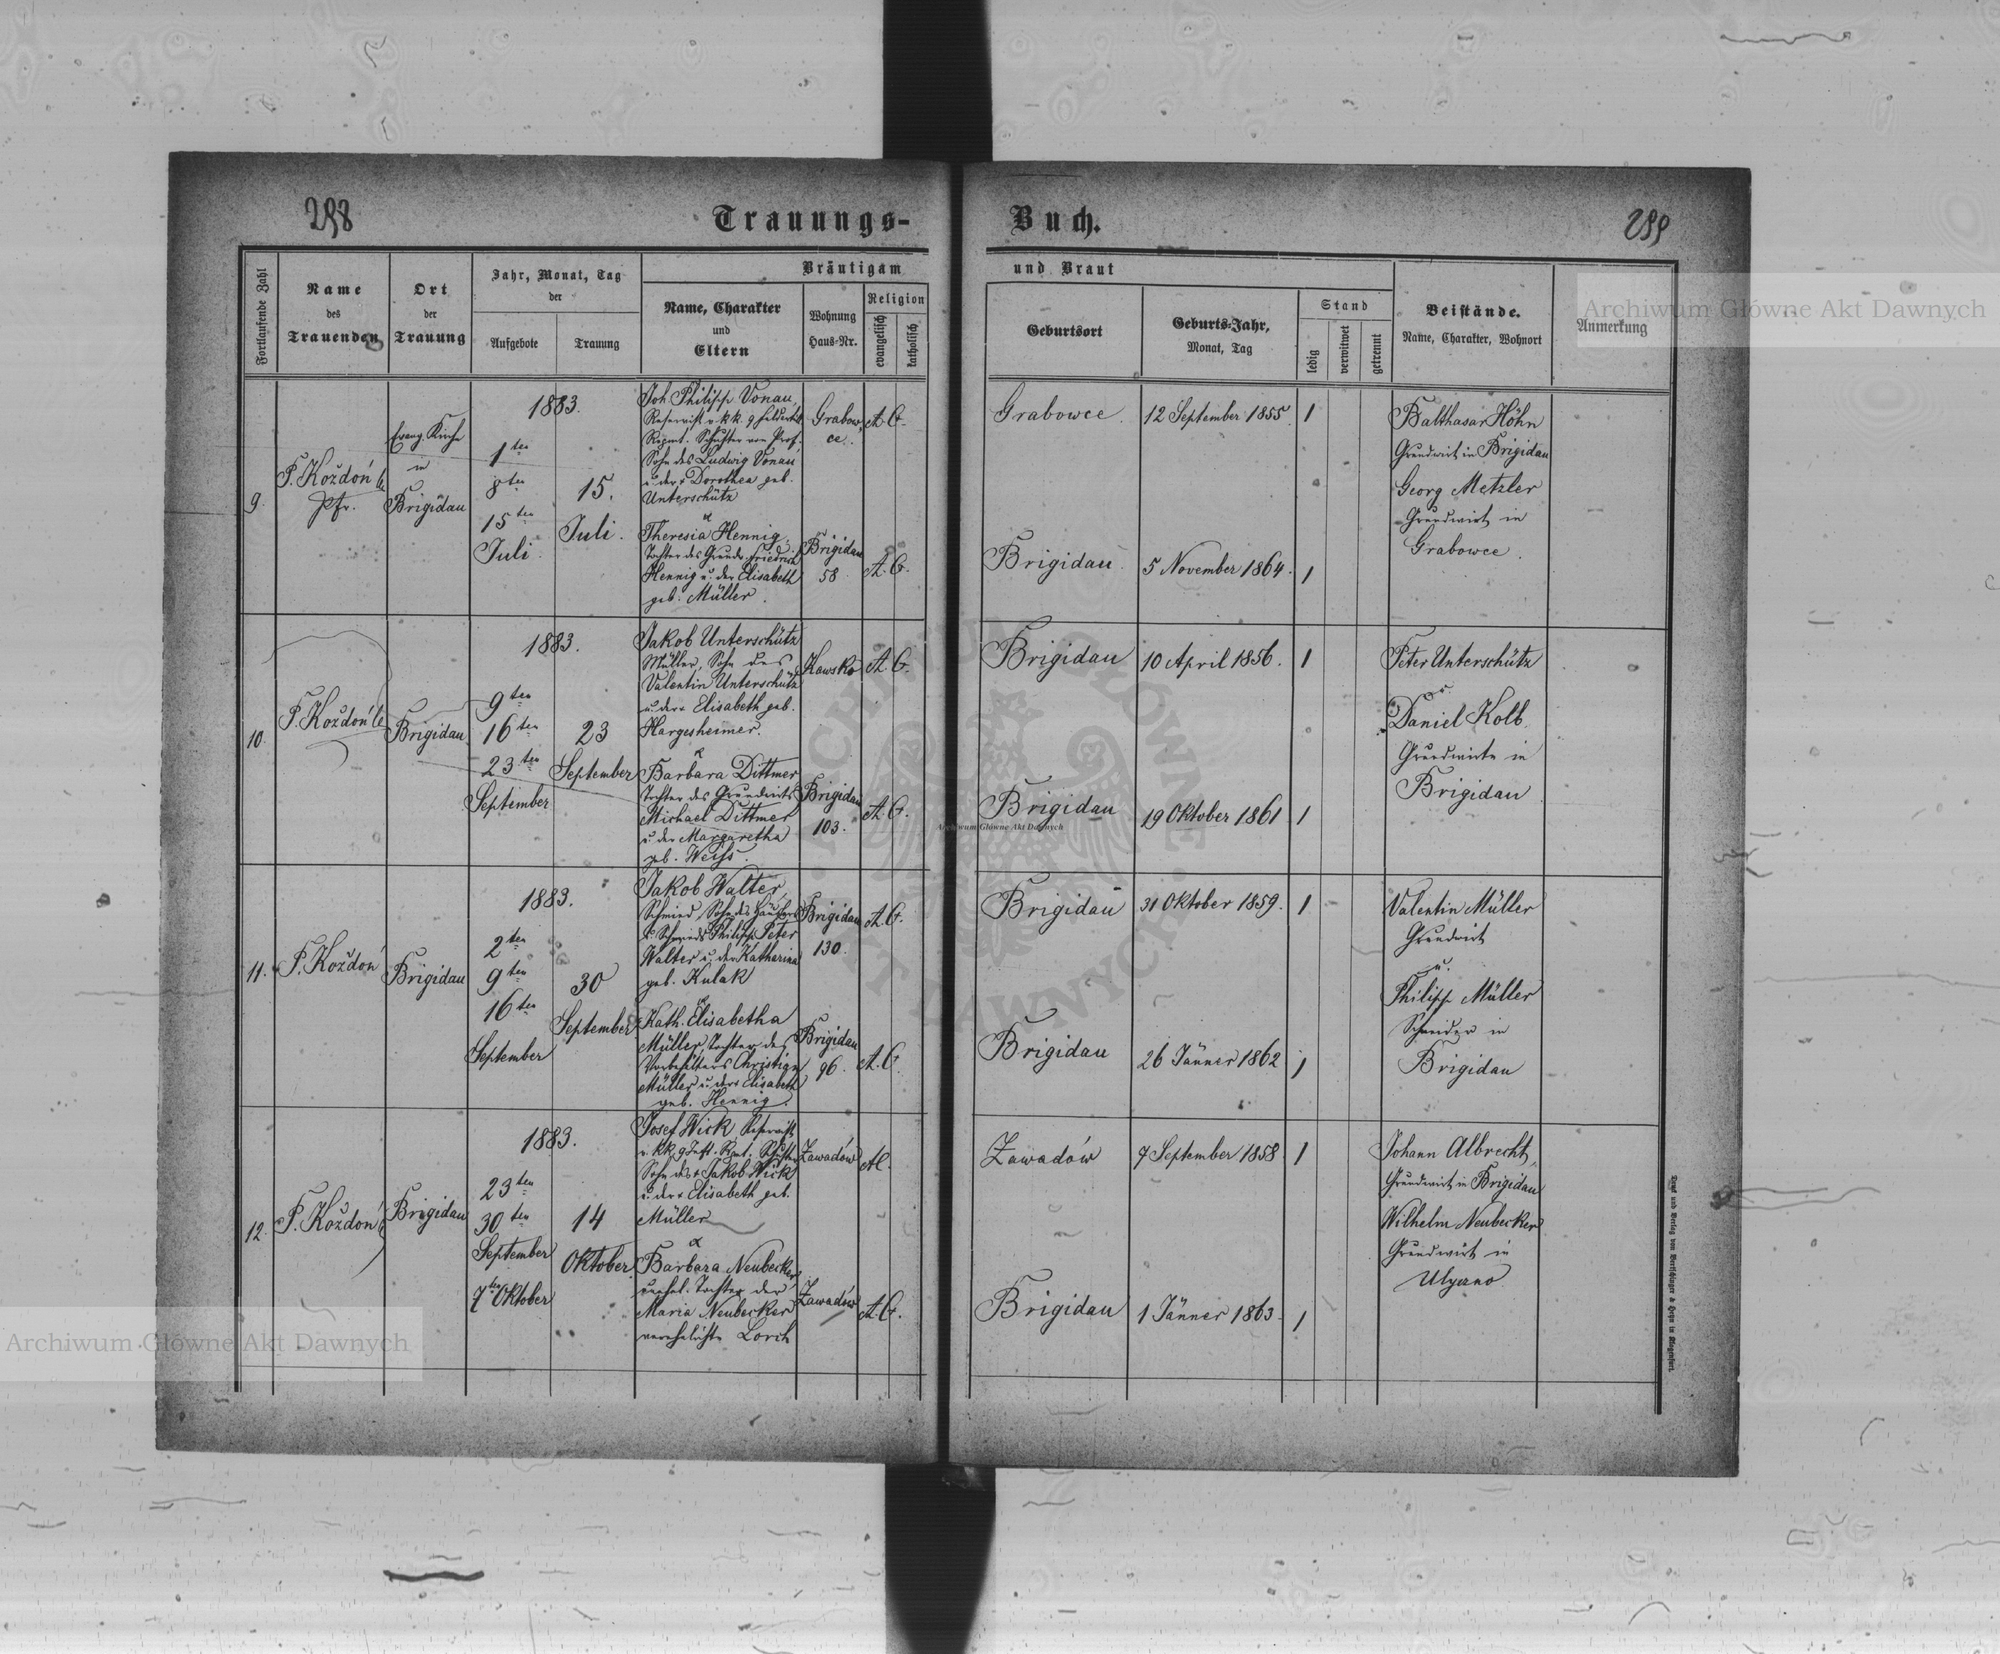 298
Trauungs-
Fortlaufende Zahl
Name
des
Trauenden
Ort
der
Trauung
Jahr, Monat, Tag
der
Aufgebote
Trauung
Bräutigam
Name, Charakter
und
Eltern
Wohnung
Haus-Nr.
Religion
evangelisch
katholisch
9.
P. Koždoń
Pfr.
Evang. Kirche
in
Brigidau
1883.
1ten
8ten
15ten
Juli.
15.
Juli.
Joh. Philipp Vonau,
Reservist v. k.k. 9
Regmt. Schuster von Prof.
Sohn des Ludwig Vonau
u. der + Dorothea geb.
Unterschütz
&
Theresia Hennig,
Tochter des Grundw. Friedrich
Hennig u. der Elisabeth
geb. Müller.
Grabow-
ce.
A. C.
Brigidau
58
A. C.
10.
P. Koždoń
Brigidau
1883.
9ten
16ten
23ten
September
23
September
Jakob Unterschütz
Müller, Sohn des
Valentin Unterschütz
u. der + Elisabeth geb.
Hargesheimer.
&
Barbara Dittmer
Tochter des Grundwirts
Michael Dittmer
u. der Margaretha
geb. Weiss.
Kawsko
A. C.
Brigidau
103.
A. C.
11.
P. Koždoń
Brigidau
1883.
2ten
9ten
16ten
September
30
September
Jakob Walter,
Schmied, Sohn des Häuslers
u. Schmieds Philipp Peter
Walter u. der Katharina
geb. Kulak
&
Kath. Elisabetha
Müller, Tochter des
Vorbehalters Christian
Müller u. der + Elisabeth
geb. Hennig.
Brigidau
130.
A. C.
Brigidau
96.
A. C.
12.
P. Koždoń
Brigidau
1883.
23ten
30ten
September
7ten Oktober
14
Oktober.
Josef Wick Reservist
v. k.k. 9 Inft. Rgmt. Schuster
Sohn des + Jakob Wick
u. der + Elisabeth geb.
Müller
&
Barbara Neubecker
unehel. Tochter der
Maria Neubecker
verehelichte Lorch
Zawadów
A.C.
Zawadów
A. C.
Buch.
299
und Braut
Geburtsort
Geburts-Jahr,
Monat, Tag
Stand
ledig
verwitwet
getrennt
Beistände.
Name, Charakter, Wohnort
Anmerkung
Grabowce.
12 September 1855.
1
Brigidau
5 November 1864.
1
Balthasar Höhn
Grundwirt in Brigidau
Georg Metzler
Grundwirt in
Grabowce.
Brigidau
10 April 1856.
1
Brigidau
19 Oktober 1861
1
Peter Unterschütz
u.
Daniel Kolb.
Grundwirte in
Brigidau
Brigidau
31 Oktober 1859.
1
Brigidau
26 Jänner 1862
1
Valentin Müller
Grundwirt
u.
Philipp Müller
Schneider in
Brigidau
Zawadów
7 September 1858
1
Brigidau
1 Jänner 1863.
1
Johann Albrecht,
Grundwirt in Brigidau
Wilhelm Neubecker
Grundwirt in
Ulyczno
Druck und Verlag von Bertschinger & Heyn in Klagenfurt.
Archiwum Główne Akt Dawnych
Archiwum Główne Akt Dawnych
Archiwum Główne Akt Dawnych
ARCHIWUM GŁÓWNE AKT DAWNYCH